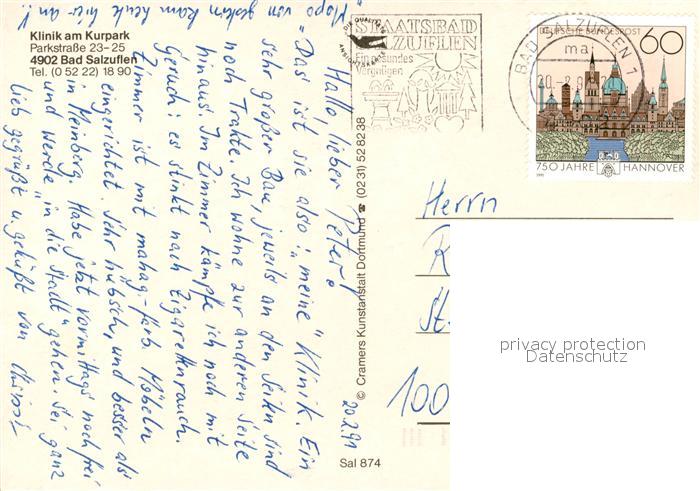 "Mopo" von gestern kam heute hier an!!
Klinik am Kurpark
Parkstraße 23-25
4902 Bad Salzuflen
Tel. (0 52 22) 18 90
Hallo, lieber Peter!
"Das ist sie also: "meine" Klinik. Ein
sehr großer Bau, jeweils an den Seiten sind
noch Trakte. Ich wohne zur anderen Seite
hinaus. Im Zimmer kämpfe ich noch mit
Geruch: es stinkt nach Zigarettenrauch.
Zimmer ist mit mahag.-farb. Möbeln
eingerichtet. Sehr hübsch, und besser als
in Meinberg. Habe jetzt vormittags noch frei
und werde "in die Stadt" gehen. Sei ganz
lieb gegrüßt u. geküßt von
20.2.91
© Cramers Kunstanstalt Dortmund ☎ (0231) 528238
Sal 874
DIE QUALITÄTS
ANSICHTSKARTE
STAATSBAD
SALZUFLEN
Ein gesundes
Vergnügen
BAD SALZUFLEN 1
ma
DEUTSCHE BUNDESPOST
60
750 JAHRE HANNOVER
1991
Herrn
R
St.
100
privacy protection
Datenschutz